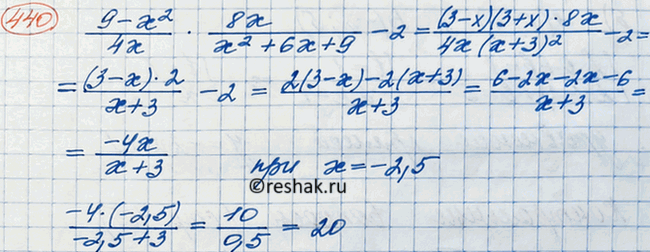 440
(9-x²)/(4x) · (8x)/(x²+6x+9) - 2 = ((3-x)(3+x)·8x)/(4x(x+3)²) - 2 =
= ((3-x)·2)/(x+3) - 2 = (2(3-x)-2(x+3))/(x+3) = (6-2x-2x-6)/(x+3) =
= (-4x)/(x+3) при x=-2,5
©reshak.ru
(-4·(-2,5))/(-2,5+3) = 10/0,5 = 20